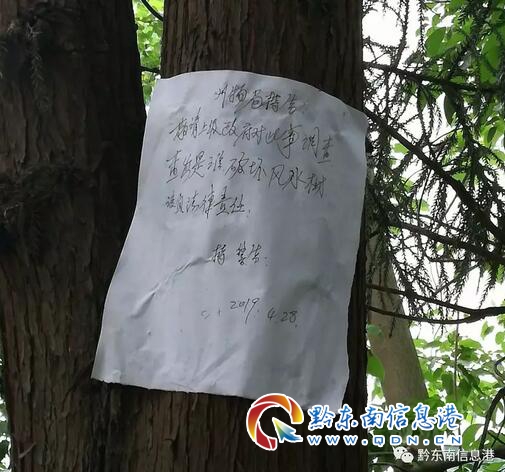 请上级政府对此事调查
查后是谁破坏风水树
谁负法律责任.
特警告.
2019.4.28.
黔东南信息港
www.QDN.cn
黔东南信息港